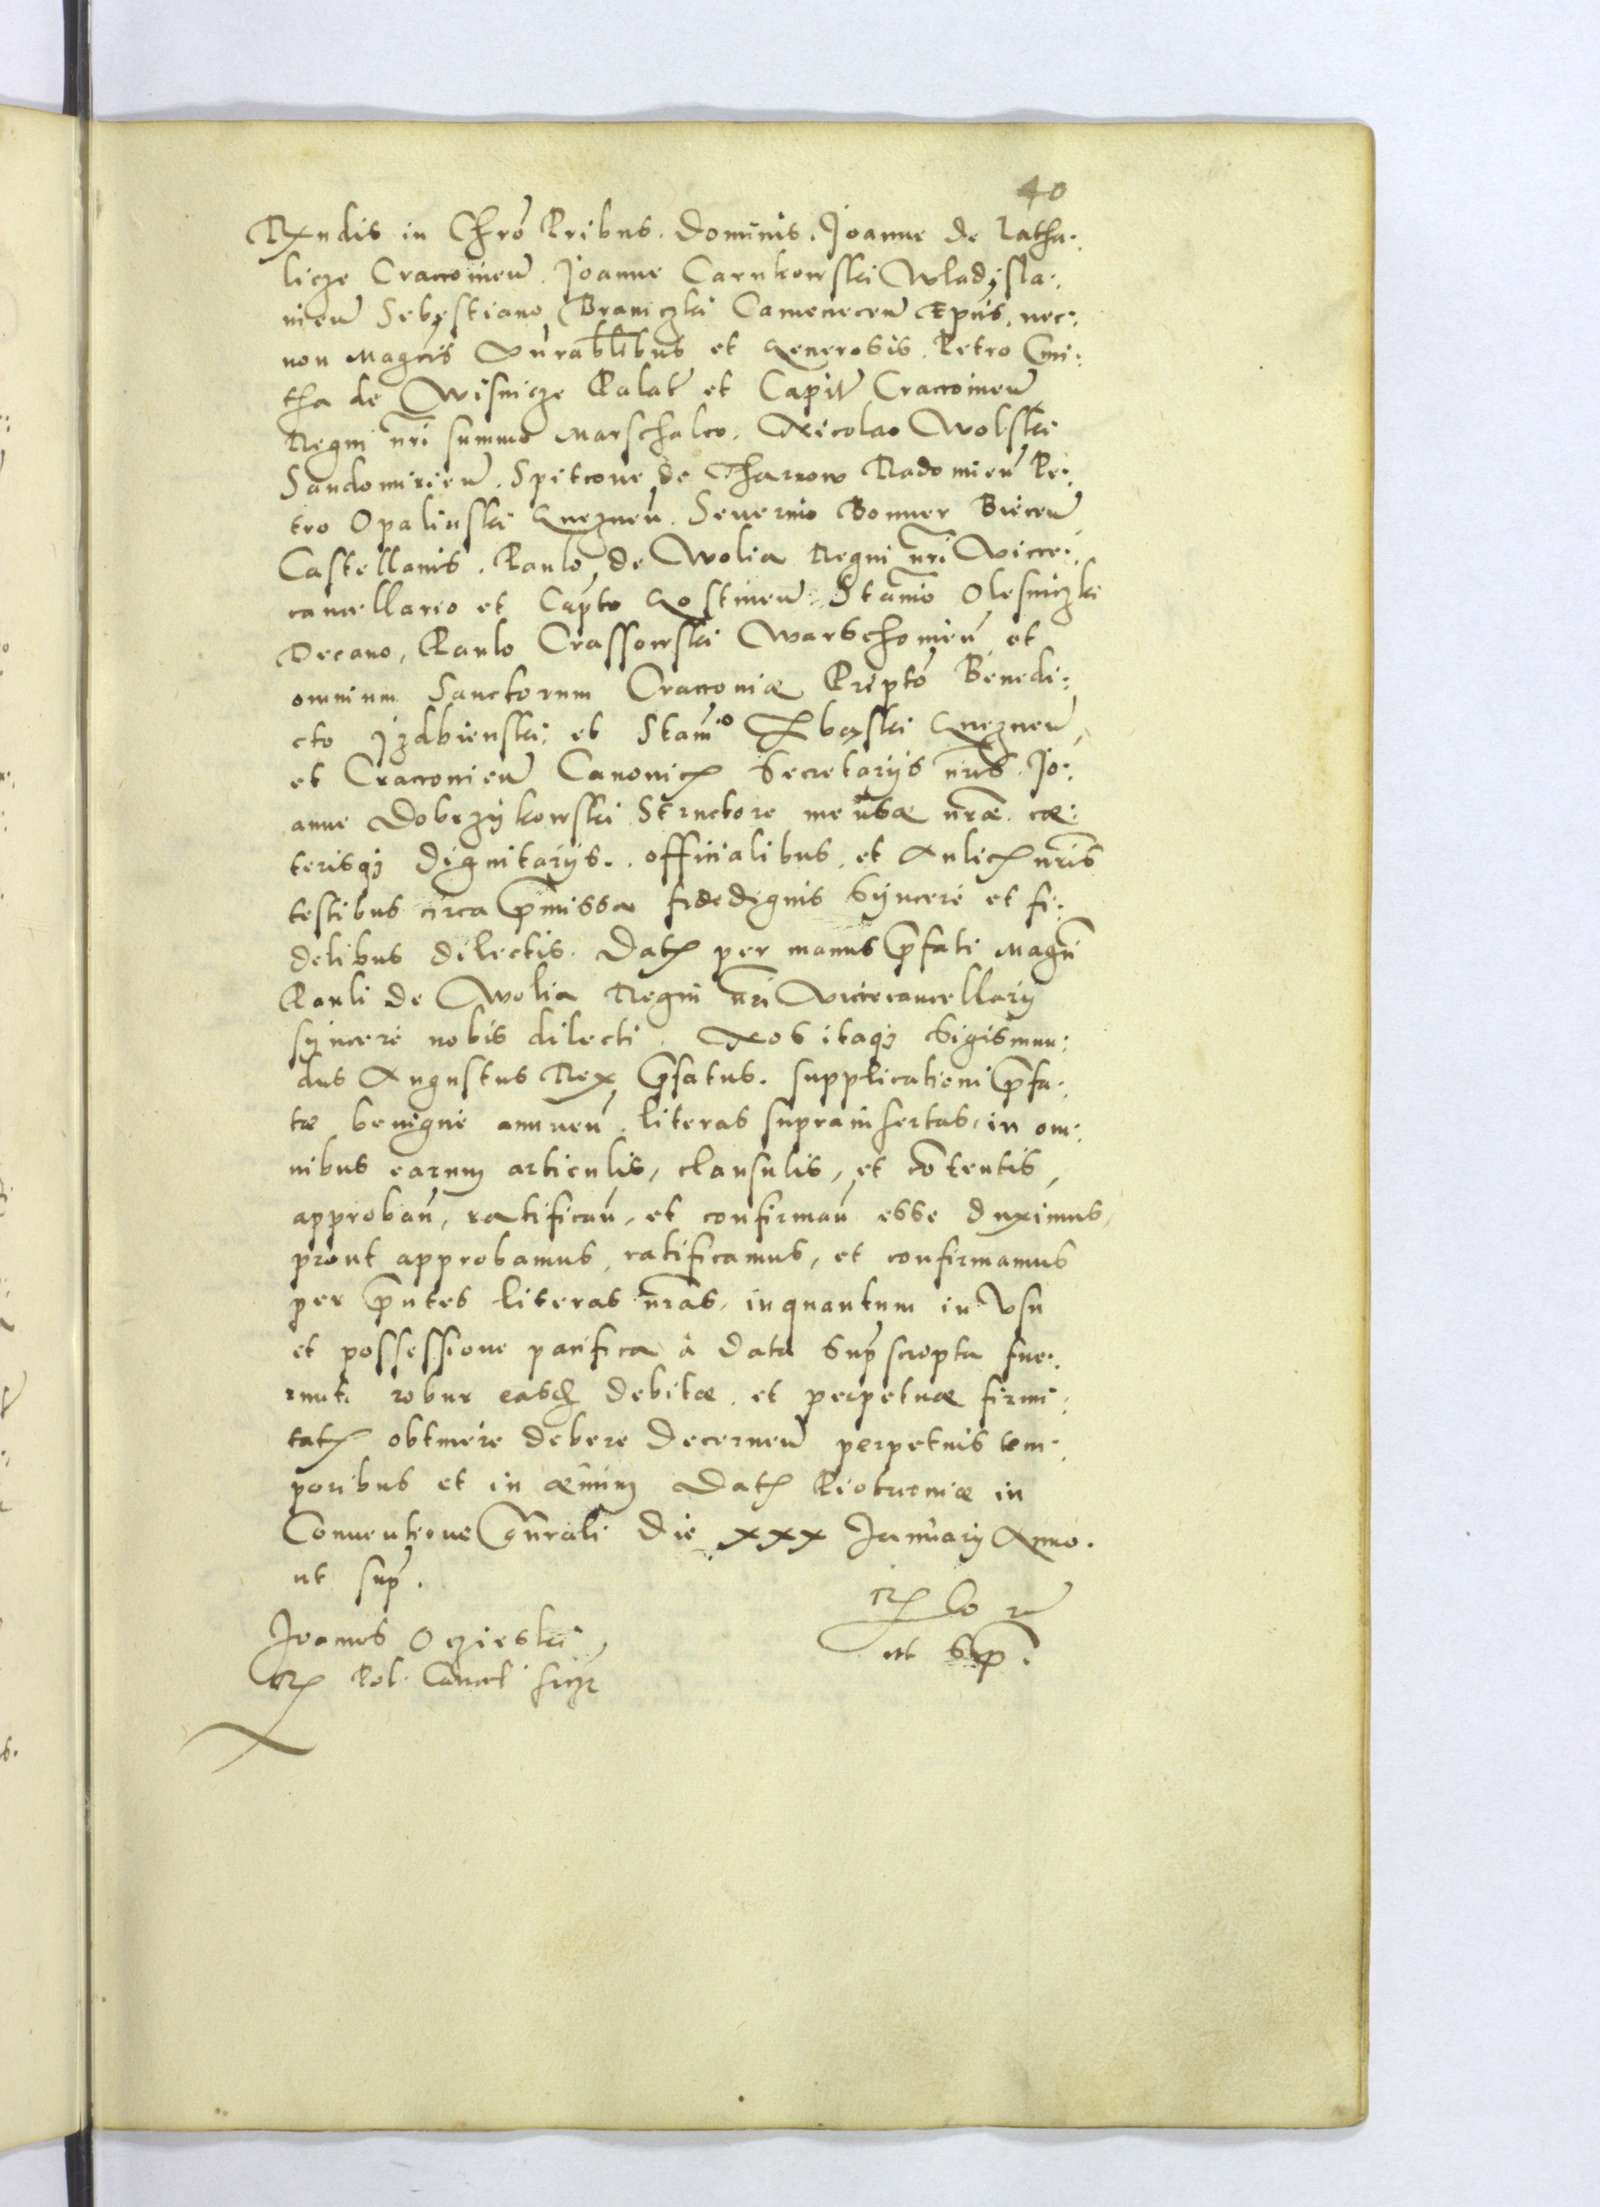 40
Rxndis in Chro Pribus. Dominis. Joanne de Latha:
licze Cracovien Joanne Carnkowski Wladisla:
vien Sebestiano Braniczki Camenecen Epis. nec:
non Magcis Vnrablibus et Generosis. Petro Cmi:
tha de Wisnicze Palat et Capit Cracovien
Regni nri summo Marschalco. Nicolao Wolski
Sandomirien. Spitcone de Tharnow Radomien Pe:
tro Opalinski Gneznen. Severino Bonner Biecen
Castellanis. Paulo de Wolia Regni nri Vice:
cancellario et Capto Gostinen. Stanio Olesniczki
Decano, Paulo Crassowski Warschovien et
omnium Sanctorum Cracoviæ Pripto Benedi:
cto Jzdbienski: et Stamo Gneznen
et Cracovien Canonicz Secretarijs nris. Jo:
anne Dobrzykowski Structore mensæ nræ. cæ:
terisqz dignitarijs. officialibus. et Aulicz nris
testibus circa pmissa fidedignis syncere et fi:
delibus dilectis. Datz per manus pfati Magci
Pauli de Wolia Regni nri Vicecancellarij
syncere nobis dilecti. Nos itaqz Sigismun:
dus Augustus Rex pfatus. supplicationi pfa:
tæ benigne annuen. literas suprainsertas, in om:
nibus earum articulis, clausulis, et contentis,
approban, ratifican, et confirman esse duximus,
prout approbamus, ratificamus, et confirmamus
per pntes literas nras, inquantum in vsu
et possessione pacifica à data supscripta fue:
runt. robur easqz debitæ. et perpetuæ firmi:
tatz obtinere debere decernen perpetuis tem:
poribus et in ævum Datz Piotrcoviæ in
Conventione Gnrali die xxx January Anno.
ut sup.
Joannes Oczieski
Rz Pol. Cancel.
ut sup.